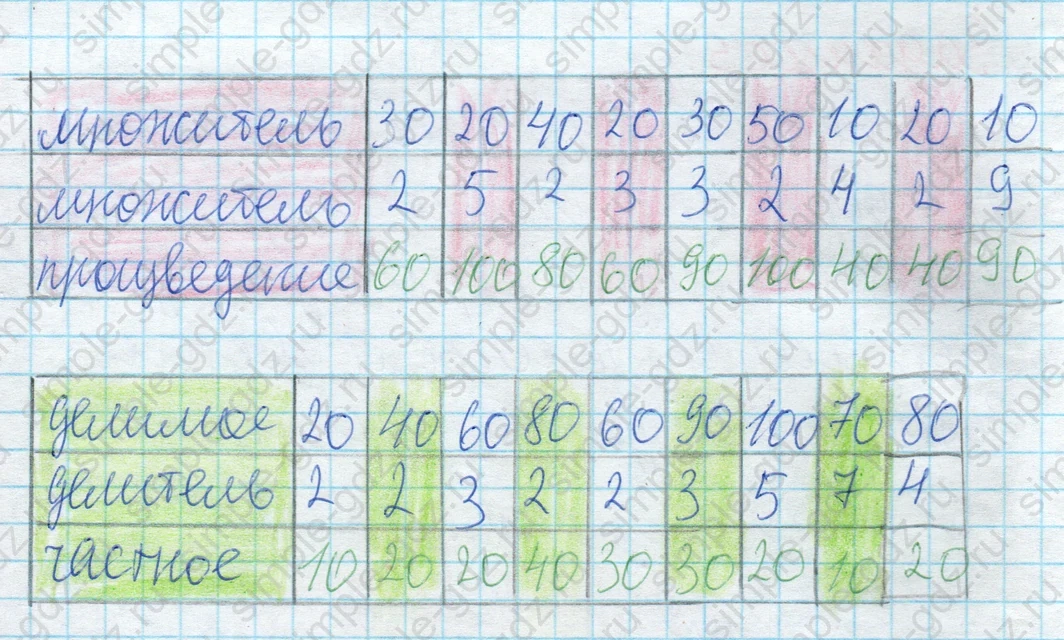 множитель 30 20 40 20 30 50 10 20 10
множитель 2 5 2 3 3 2 4 2 9
произведение 60 100 80 60 90 100 40 40 90
делимое 20 40 60 80 60 90 100 70 80
делитель 2 2 3 2 2 3 5 7 4
частное 10 20 20 40 30 30 20 10 20
simple-gdz.ru